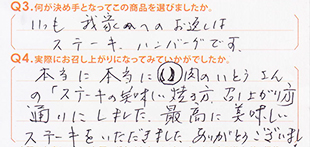 Q3.何が決め手となってこの商品を選びましたか。
いつも 我家からのお返しは
ステーキ、ハンバーグです。
Q4.実際にお召し上がりになってみていかがでしたか。
本当に 本当に (い)肉のいとうさん、
の「ステーキの美味しい焼き方、召し上がり方
通りにしました。最高に 美味しい
ステーキをいただきました。ありがとうございまし